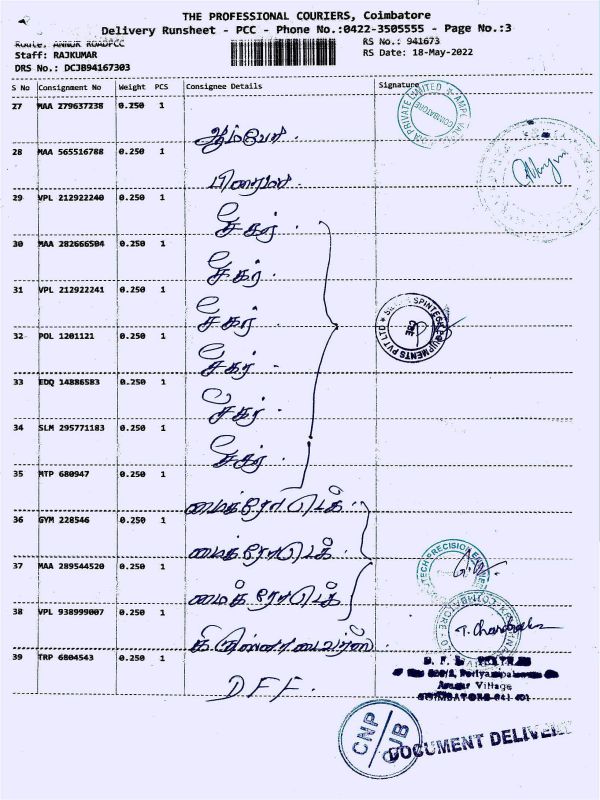 THE PROFESSIONAL COURIERS, Coimbatore
Delivery Runsheet - PCC - Phone No.:0422-3505555 - Page No.:3
Route: ANNUR ROADPCC
RS No.: 941673
Staff: RAJKUMAR
RS Date: 18-May-2022
DRS No.: DCJB94167303
S No Consignment No Weight PCS Consignee Details Signature
27 MAA 279637238 0.250 1
28 MAA 565516788 0.250 1
29 VPL 212922240 0.250 1 சேகர்
30 MAA 282666504 0.250 1 சேகர்
31 VPL 212922241 0.250 1 சேகர்
32 POL 1201121 0.250 1 சேகர்
33 EDQ 14886583 0.250 1 சேகர்
34 SLM 295771183 0.250 1 சேகர்
35 MTP 680947 0.250 1 மைக்ரோடெக்
36 GYM 228546 0.250 1 மைக்ரோடெக்
37 MAA 289544520 0.250 1 மைக்ரோடெக்
38 VPL 938999007 0.250 1
39 TRP 6804543 0.250 1 DFF.
PRIVATE LIMITED
COIMBATORE
EQUIPMENTS PVT LTD
CBE
PRECISION
T. Chandra
Annur Village
COIMBATORE-641 401
CNP
CJB
DOCUMENT DELIVERY